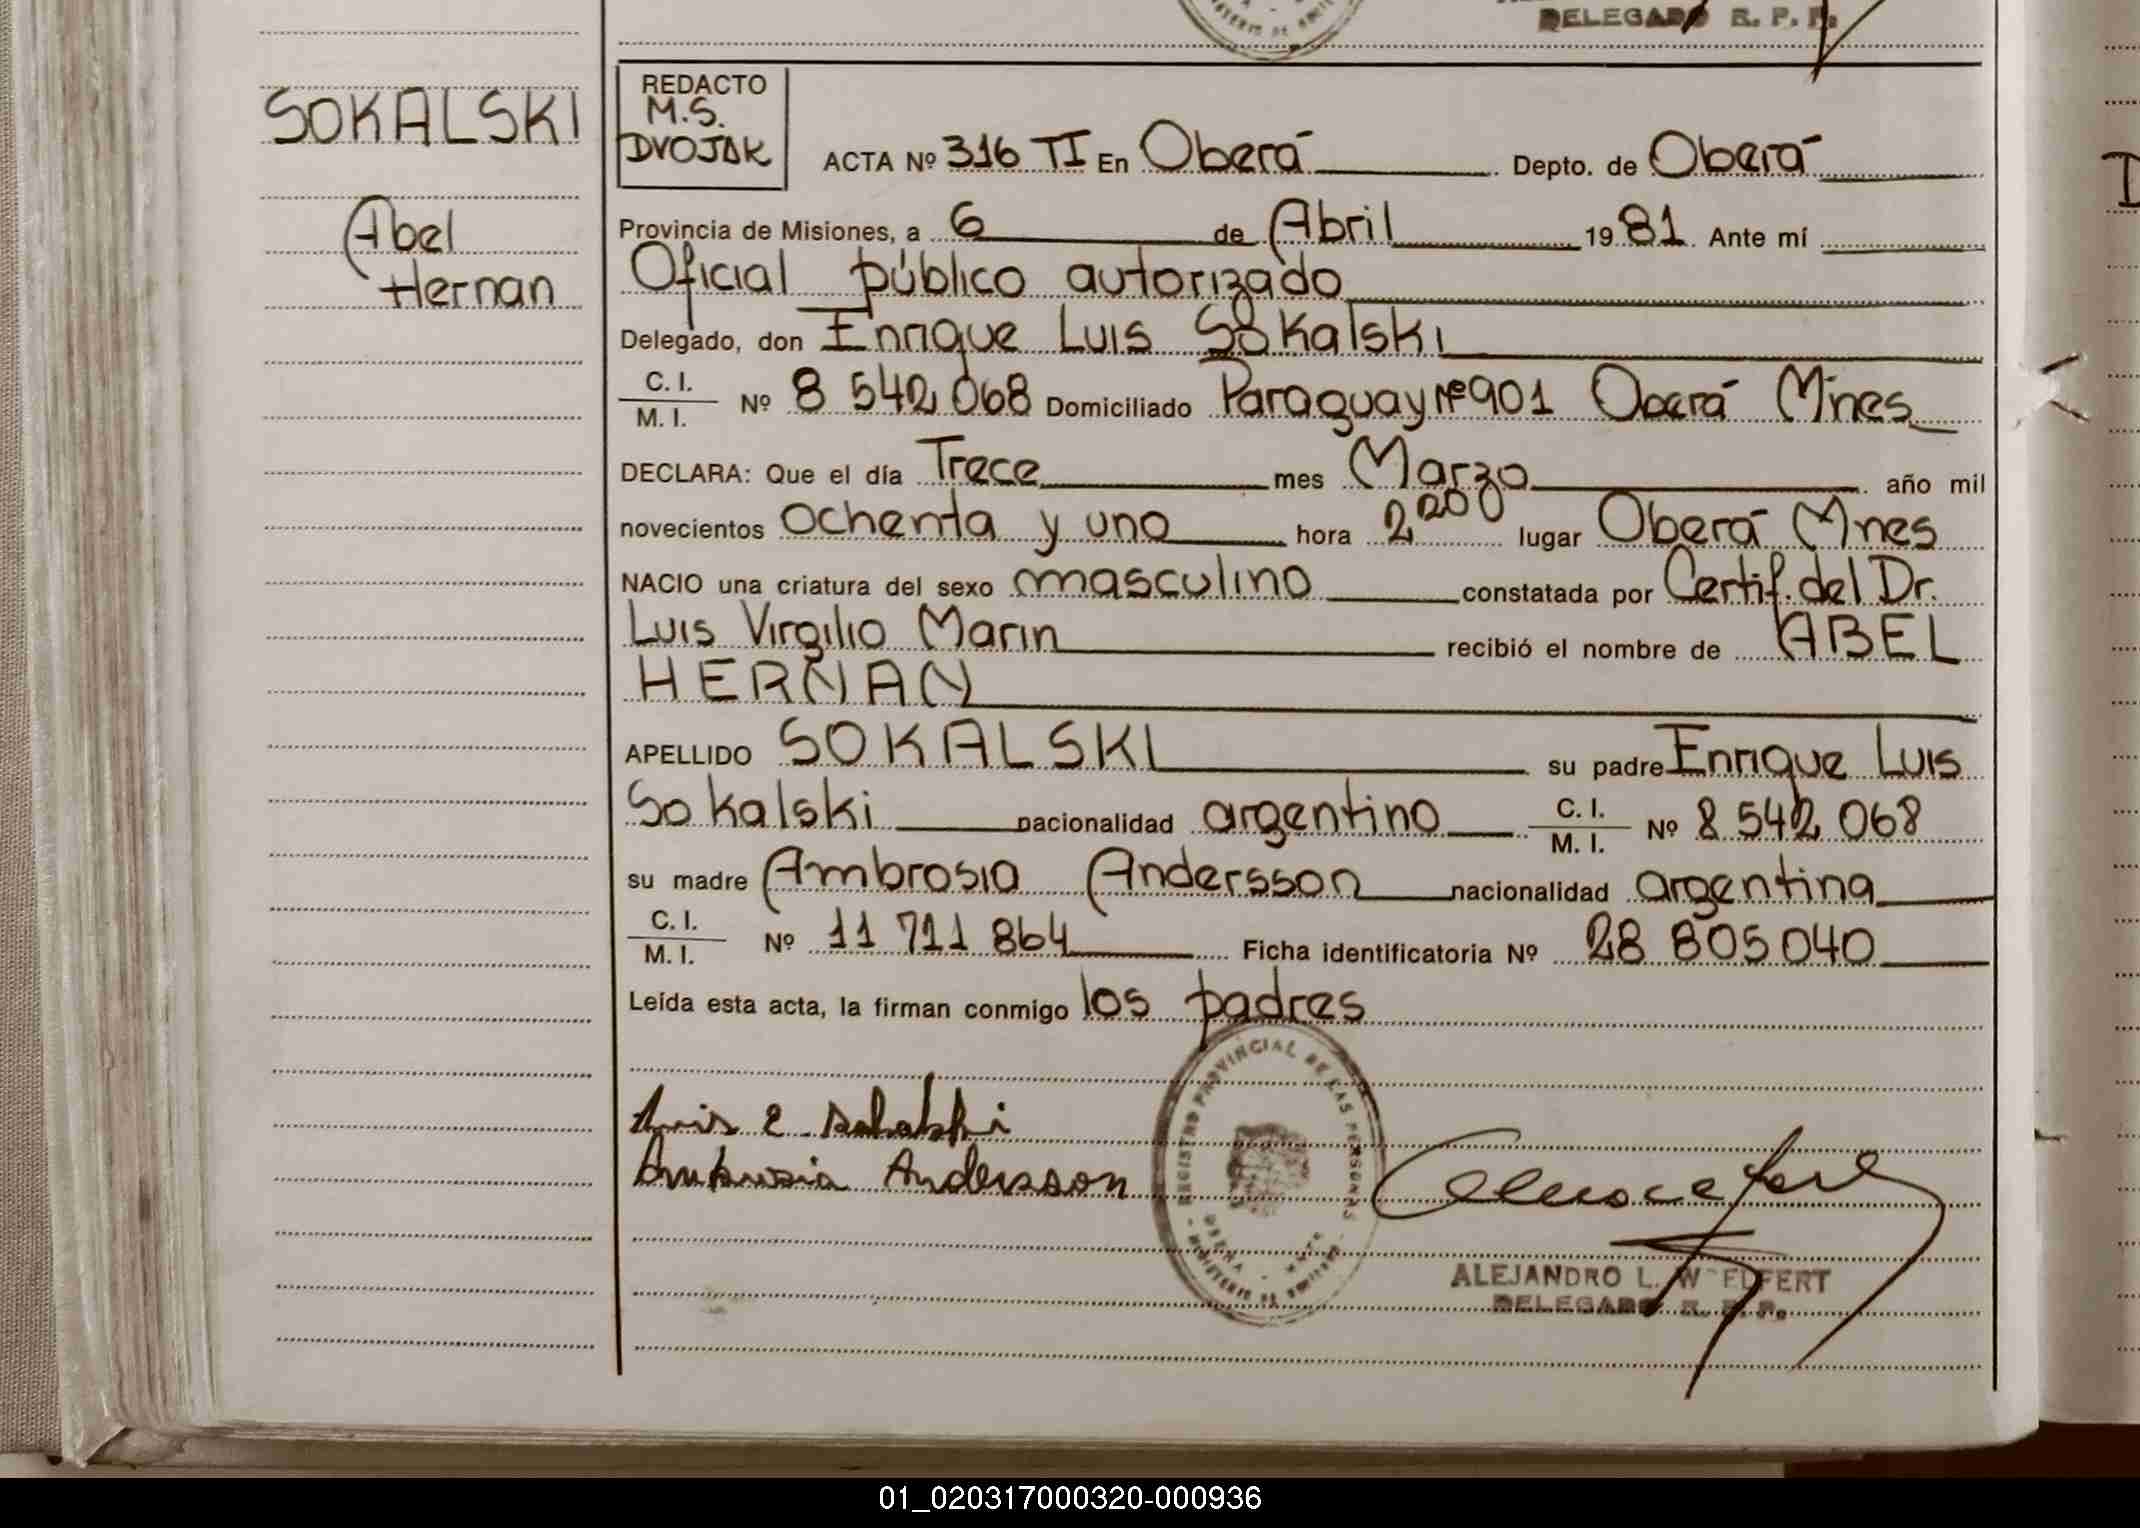 DELEGADO R. P. P.
SOKALSKI
Abel
Hernan
REDACTO
M.S.
DVOJAK
ACTA Nº 316 TI En Oberá Depto. de Oberá
Provincia de Misiones, a 6 de Abril 1981. Ante mí
Oficial público autorizado
Delegado, don Enrique Luis Sokalski
C. I.
M. I. Nº 8 542 068 Domiciliado Paraguay Nº 901 Oberá Mnes
DECLARA: Que el día Trece mes Marzo año mil
novecientos ochenta y uno hora 2 200 lugar Oberá Mnes
NACIO una criatura del sexo masculino constatada por Certif. del Dr.
Luis Virgilio Marin recibió el nombre de ABEL
HERNAN
APELLIDO SOKALSKI su padre Enrique Luis
Sokalski nacionalidad argentino C. I.
M. I. Nº 8 542 068
su madre Ambrosia Andersson nacionalidad argentina
C. I.
M. I. Nº 11 711 864 Ficha identificatoria Nº 28 805 040
Leída esta acta, la firman conmigo los padres
Luis E Sokalski
Ambrosia Andersson
REGISTRO PROVINCIAL DE LAS PERSONAS
ALEJANDRO L. W ELFERT
DELEGADO R. P. P.
01_020317000320-000936